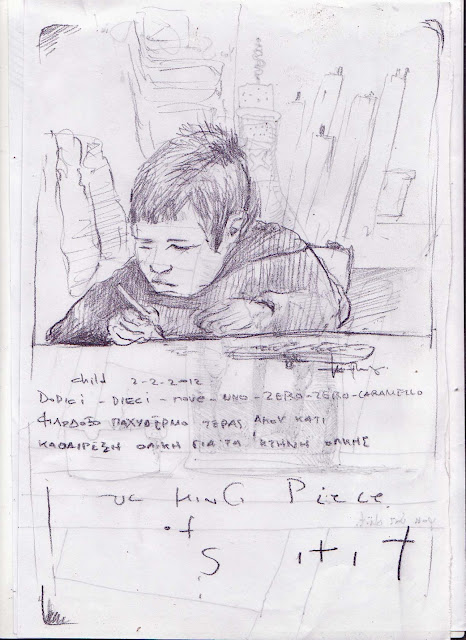 child 2-2-2012
DODICI - DIECI - NOVE - UNO - ZERO - ZERO - CARAMELLO
ΦΙΛΟΔΟΞΟ ΠΑΧΥΔΕΡΜΟ ΤΕΡΑΣ ΑΚΟΥ ΚΑΤΙ
ΚΑΘΑΙΡΕΣΗ ΟΛΙΚΗ ΓΙΑ ΤΑ ΚΤΗΝΗ ΟΛΚΗΣ
UC KING Piece
of